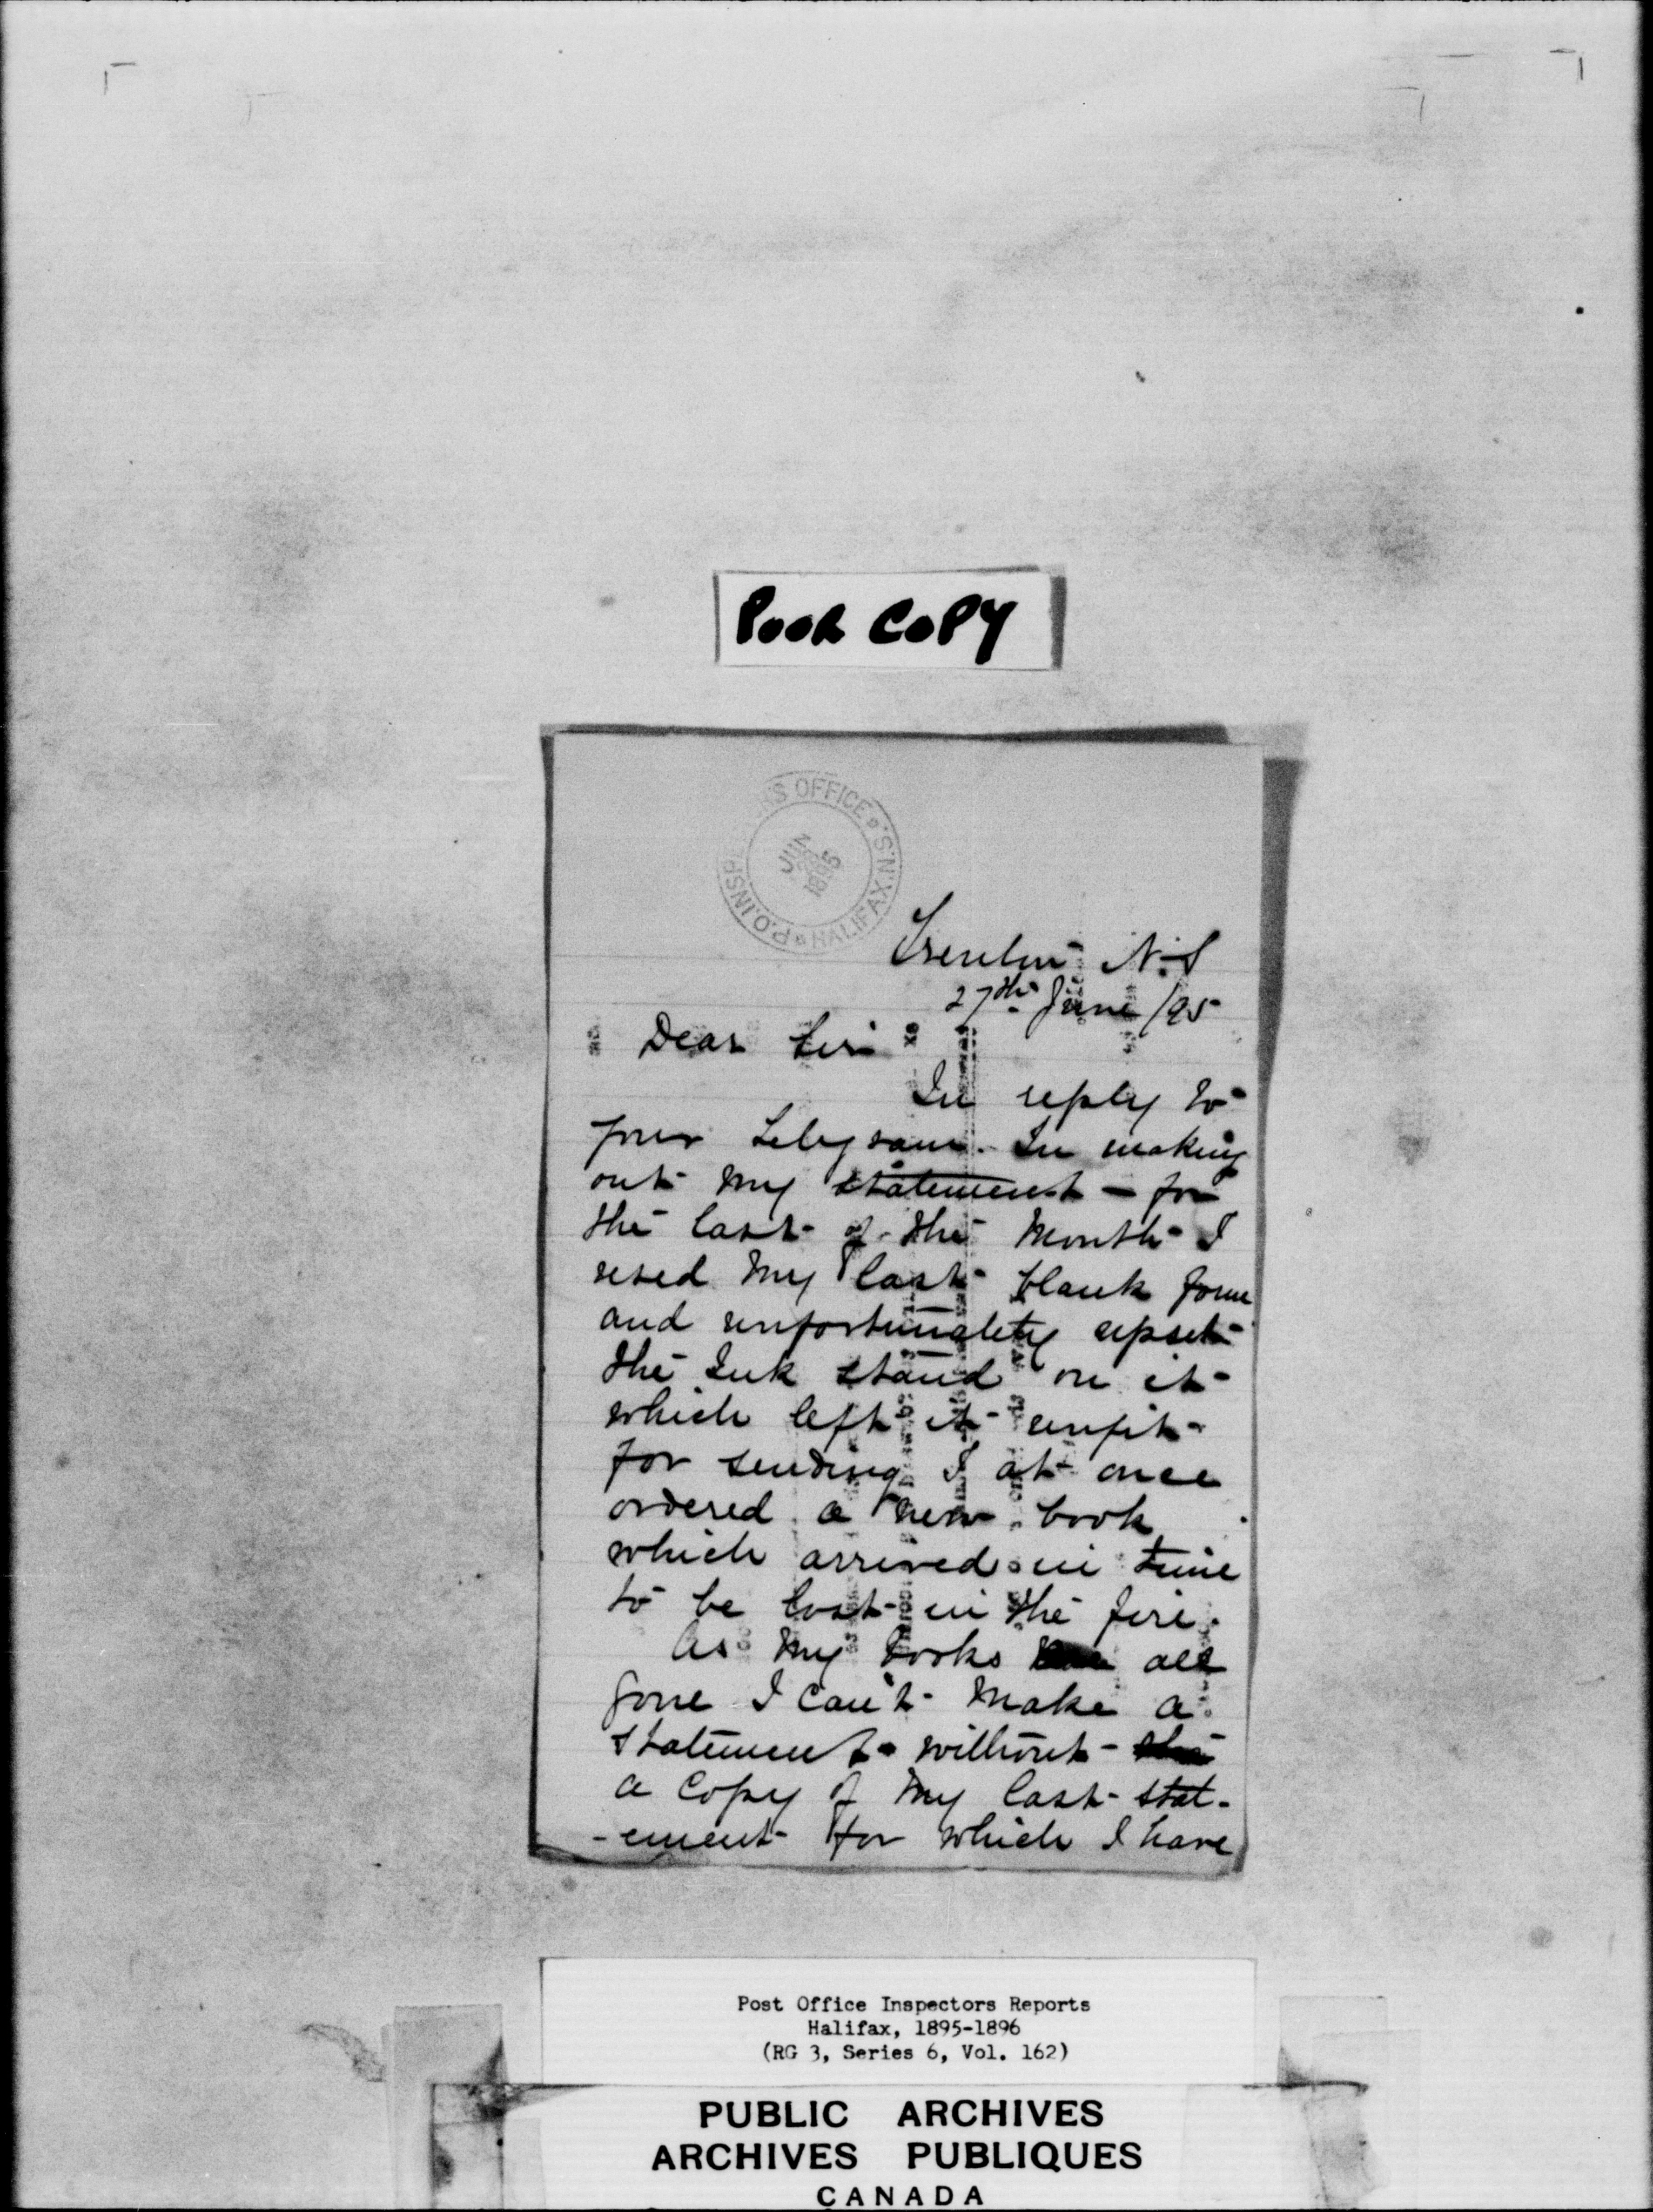 POOR COPY
P.O. INSP RS OFFICE HALIFAX, N.S.
JUN
1895
Trenton N.S
27th June /95
Dear Sir
In reply to
your Telegram. In making
out my statement - for
the last of the month I
used my last blank form
and unfortunately upset
the Ink stand on it
which left it unfit
for sending I at once
ordered a new book
which arrived in time
to be lost in the fire.
As my books all
gone I can't make a
statement without
a copy of my last stat-
-ement for which I have
Post Office Inspectors Reports
Halifax, 1895-1896
(RG 3, Series 6, Vol. 162)
PUBLIC ARCHIVES
ARCHIVES PUBLIQUES
CANADA